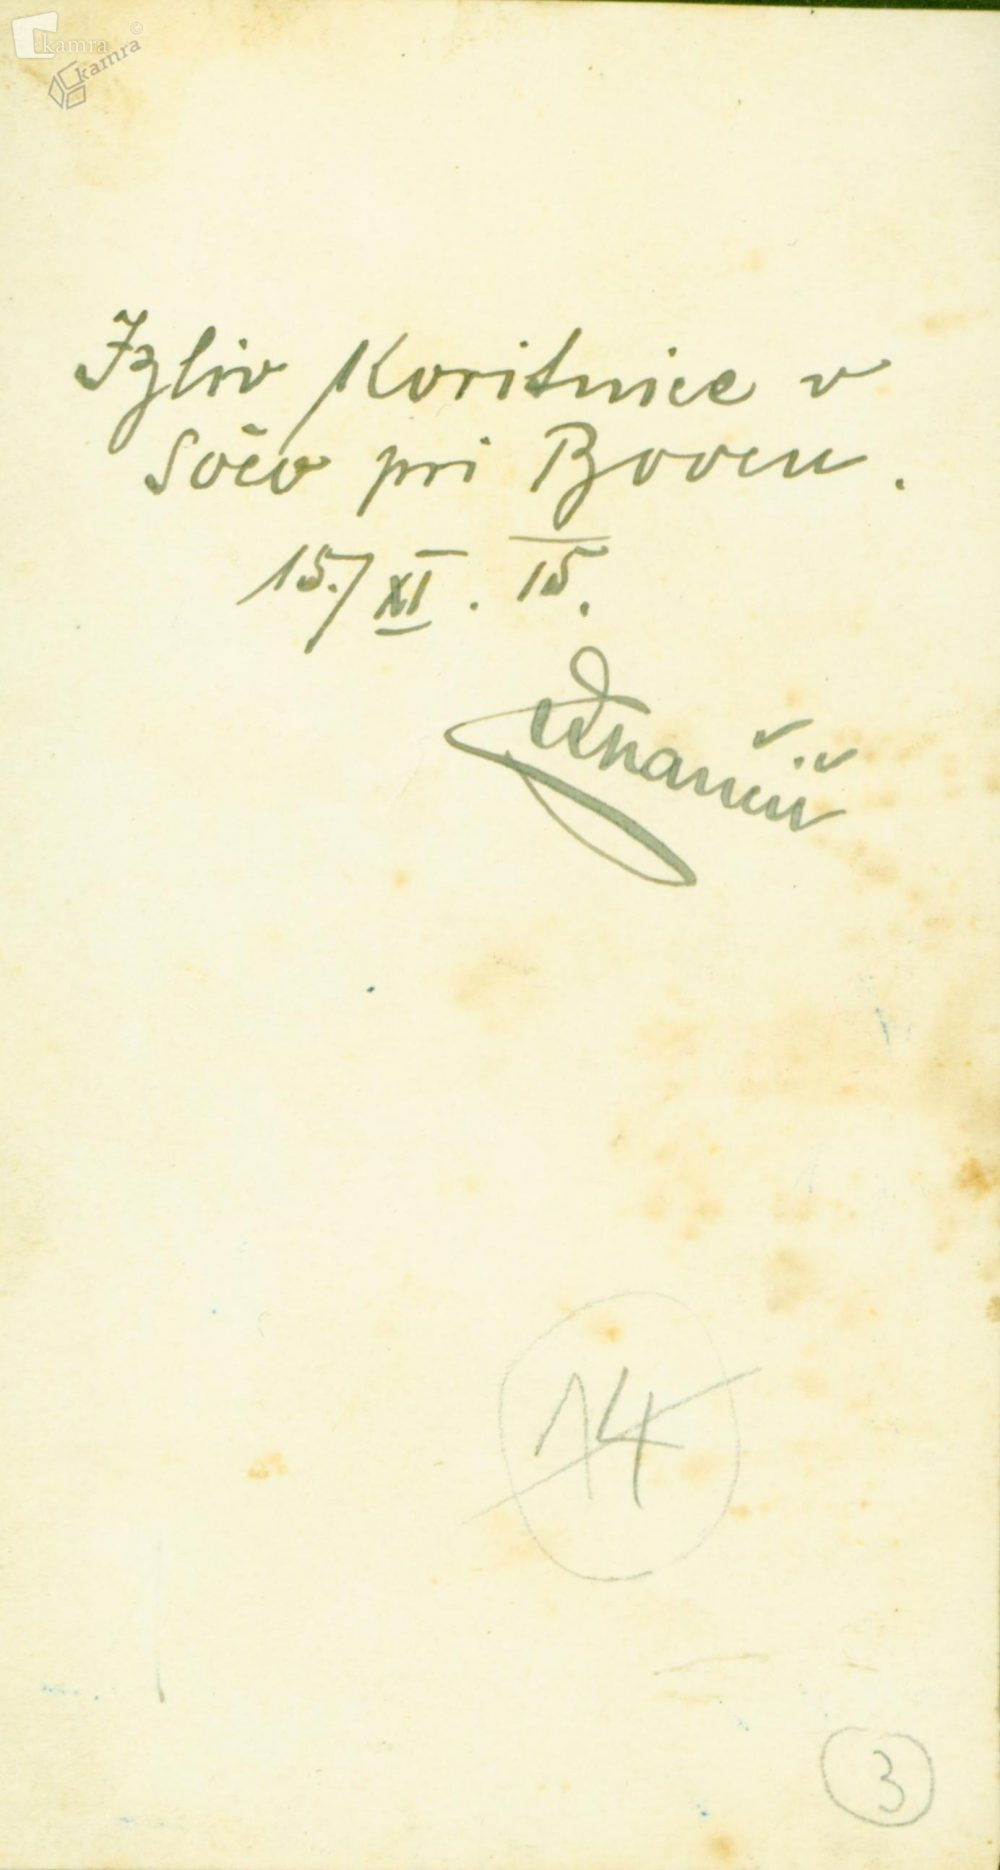 kamra
kamra ©
Izliv Koritnice v
Sočo pri Bovcu.
15./XI. 15.
14
3